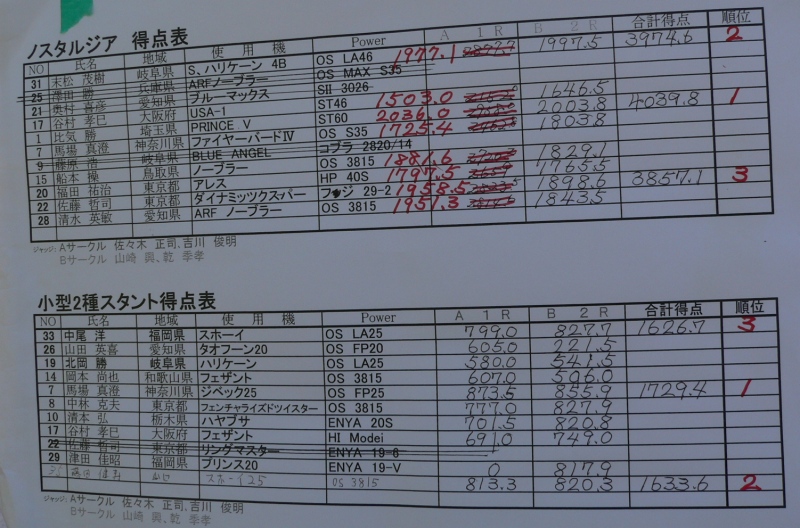 ノスタルジア 得点表
NO 氏名 地域 使用機 Power A 1R B 2R 合計得点 順位
31 末松 茂樹 岐阜県 S、ハリケーン 4B OS LA46 1977.1 1997.5 3974.6 2
25 澤田 勝 兵庫県 ARFノーブラー OS MAX S35
21 奥村 喜彦 愛知県 ブルーマックス SII 3026
17 谷村 孝巳 大阪府 USA-1 ST46 1503.0 1646.5
1 比気 勝 埼玉県 PRINCE V ST60 2036.0 2003.8 4039.8 1
7 馬場 真澄 神奈川県 ファイヤーバードⅣ OS S35 1725.4 1803.8
9 藤原 浩 岐阜県 BLUE ANGEL コブラ 2820/14
15 船本 操 鳥取県 ノーブラー OS 3815 1881.6 1829.1
20 福田 祐治 東京都 アレス HP 40S 1797.5 1765.5
22 佐藤 哲司 東京都 ダイナミッツクスパー フッジ 29-2 1958.5 1898.6 3857.1 3
28 清水 英敏 愛知県 ARF ノーブラー OS 3815 1951.3 1843.5
ジャッジ: Aサークル 佐々木 正司、吉川 俊明
Bサークル 山崎 興、乾 季孝
小型2種スタント得点表
NO 氏名 地域 使用機 Power A 1R B 2R 合計得点 順位
33 中尾 洋 福岡県 スホーイ OS LA25 799.0 827.7 1626.7 3
26 山田 英喜 愛知県 タオフーン20 OS FP20 605.0 221.5
19 北岡 勝 岐阜県 ハリケーン OS LA25 580.0 541.5
14 岡本 尚也 和歌山県 フェザント OS 3815 607.0 596.0
7 馬場 真澄 神奈川県 ジベック25 OS FP25 873.5 855.9 1729.4 1
8 中林 克夫 東京都 フェンチャライズドツイスター OS 3815 777.0 827.9
10 清本 弘 栃木県 ハヤブサ ENYA 20S 701.5 820.8
17 谷村 孝巳 大阪府 フェザント HI Modei 691.0 749.0
22 佐藤 哲司 東京都 リングマスター ENYA 19-6
29 津田 佳昭 福岡県 プリンス20 ENYA 19-V 0 817.9
スホーイ25 OS 3815 813.3 820.3 1633.6 2
ジャッジ: Aサークル 佐々木 正司、吉川 俊明
Bサークル 山崎 興、乾 季孝